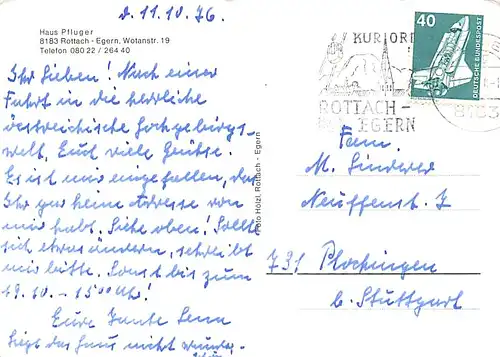 d. 11.10.76
Haus Pfluger
8183 Rottach - Egern, Wotanstr. 19
Telefon 080 22 / 264 40
Ihr Lieben! Nach einer
Fahrt in die herrliche
österreichische Hochgebirgs-
welt, Euch viele Grüße.
Es ist mir eingefallen, daß
Ihr gar keine Adresse von
mir habt. Siehe oben! Sollte
sich etwas ändern, schreibt
mir bitte. Sonst bis zum
19.10. - 15⁰⁰ Uhr!
Eure Tante Lena
Liegt das Haus nicht wunder-
schön
Foto Hölzl, Rottach - Egern
KURORT
ROTTACH-
EGERN
8183
40
DEUTSCHE BUNDESPOST
Fam.
M. Sinderer
Neuffenst. 7
731 Plochingen
b. Stuttgart